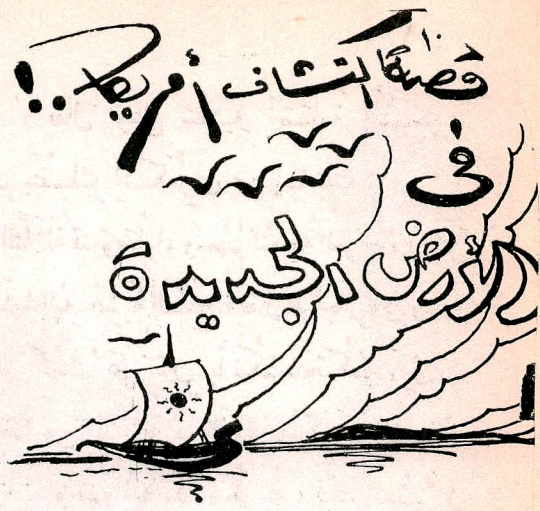 قصة اكتشاف أمريكا..!
في
الأرض الجديدة